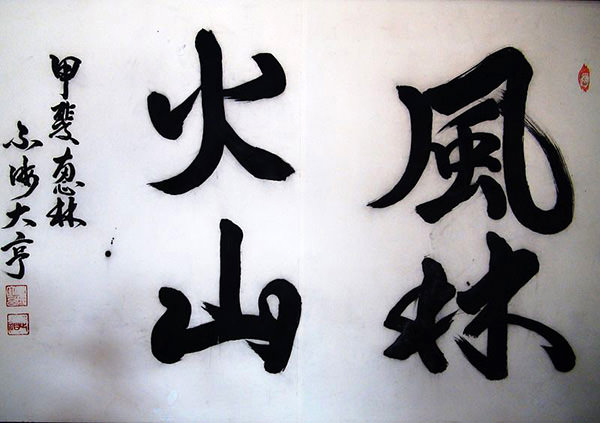 風林
火山
甲斐恵林
不汚大亨